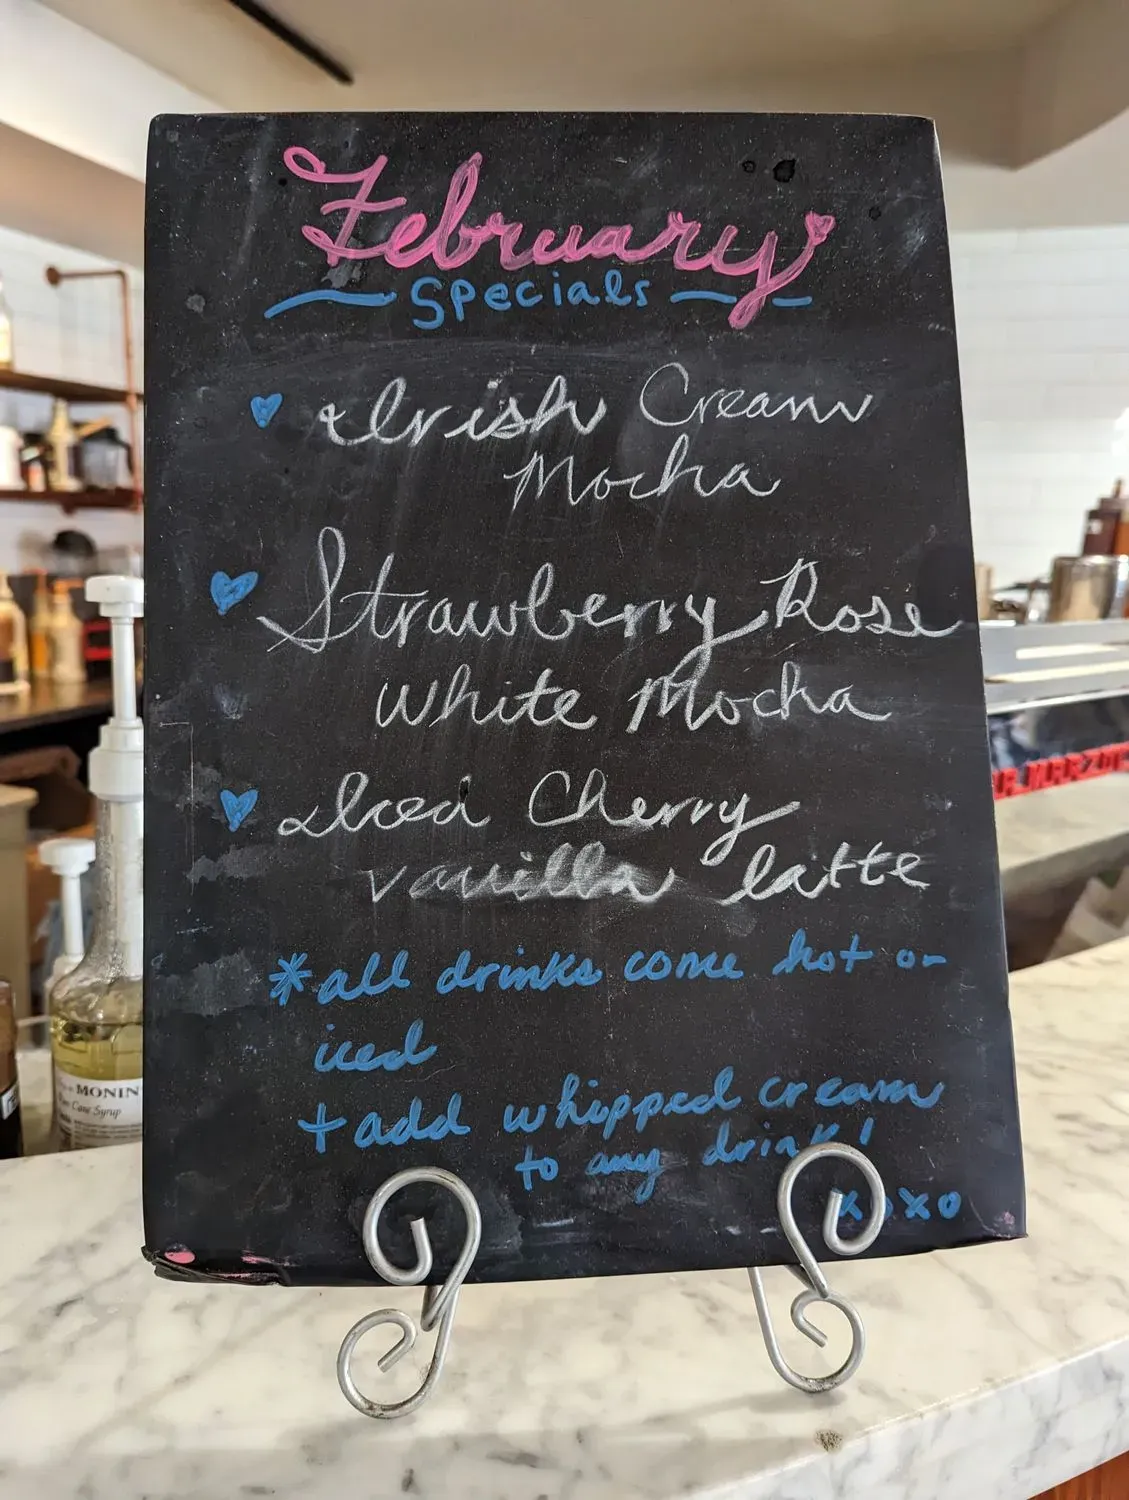 February
Specials
Irish Cream
Mocha
Strawberry Rose
White Mocha
Iced Cherry
vanilla latte
*all drinks come hot or
iced
+add whipped cream
to any drink!
xoxo
MONIN
Cane Syrup
LA MARZOCCO